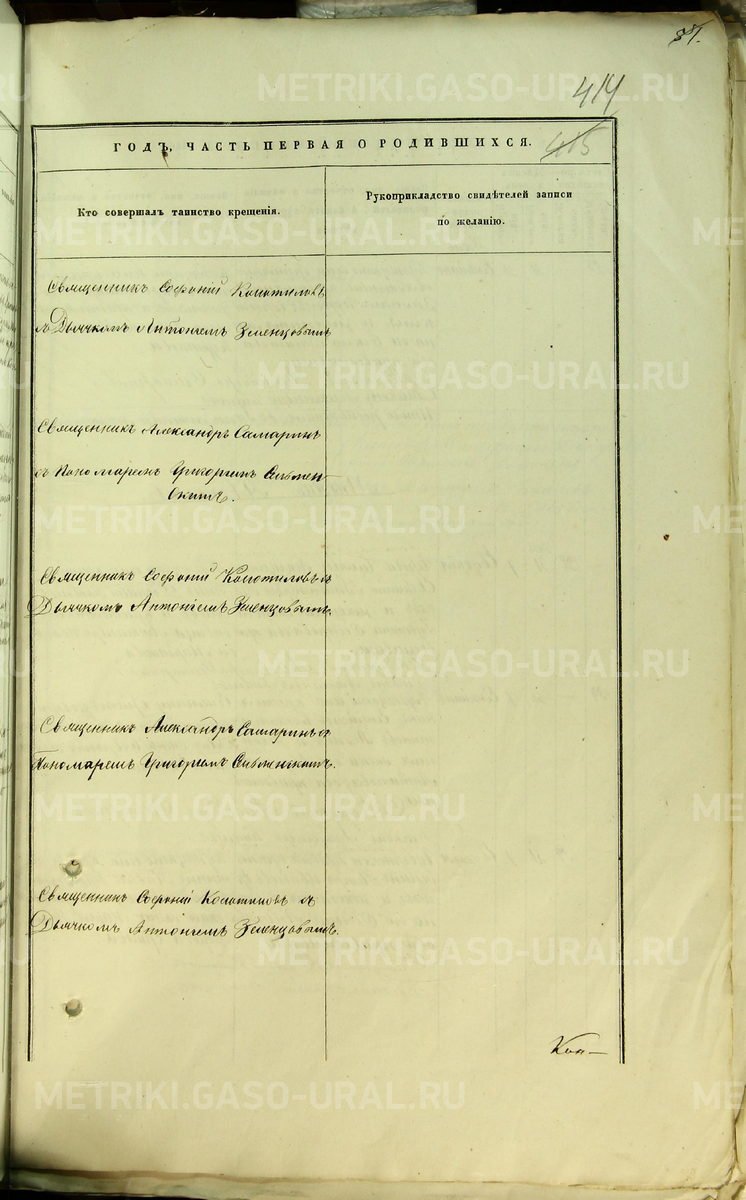 37.
414
415
ГОДЪ, ЧАСТЬ ПЕРВАЯ О РОДИВШИХСЯ.
Кто совершалъ таинство крещенія.
Рукоприкладство свидѣтелей записи
по желанію.
Священникъ Софоній Копотиловъ
съ Дьячкомъ Антоніемъ Зеленцовымъ
Священникъ Александръ Самаринъ
съ Пономаремъ Григоріемъ
Священникъ Софоній Копотиловъ съ
Дьячкомъ Антоніемъ Зеленцовымъ.
Священникъ Александръ Самаринъ съ
Пономаремъ Григоріемъ
Священникъ Софоній Копотиловъ съ
Дьячкомъ Антоніемъ Зеленцовымъ.
METRIKI.GASO-URAL.RU